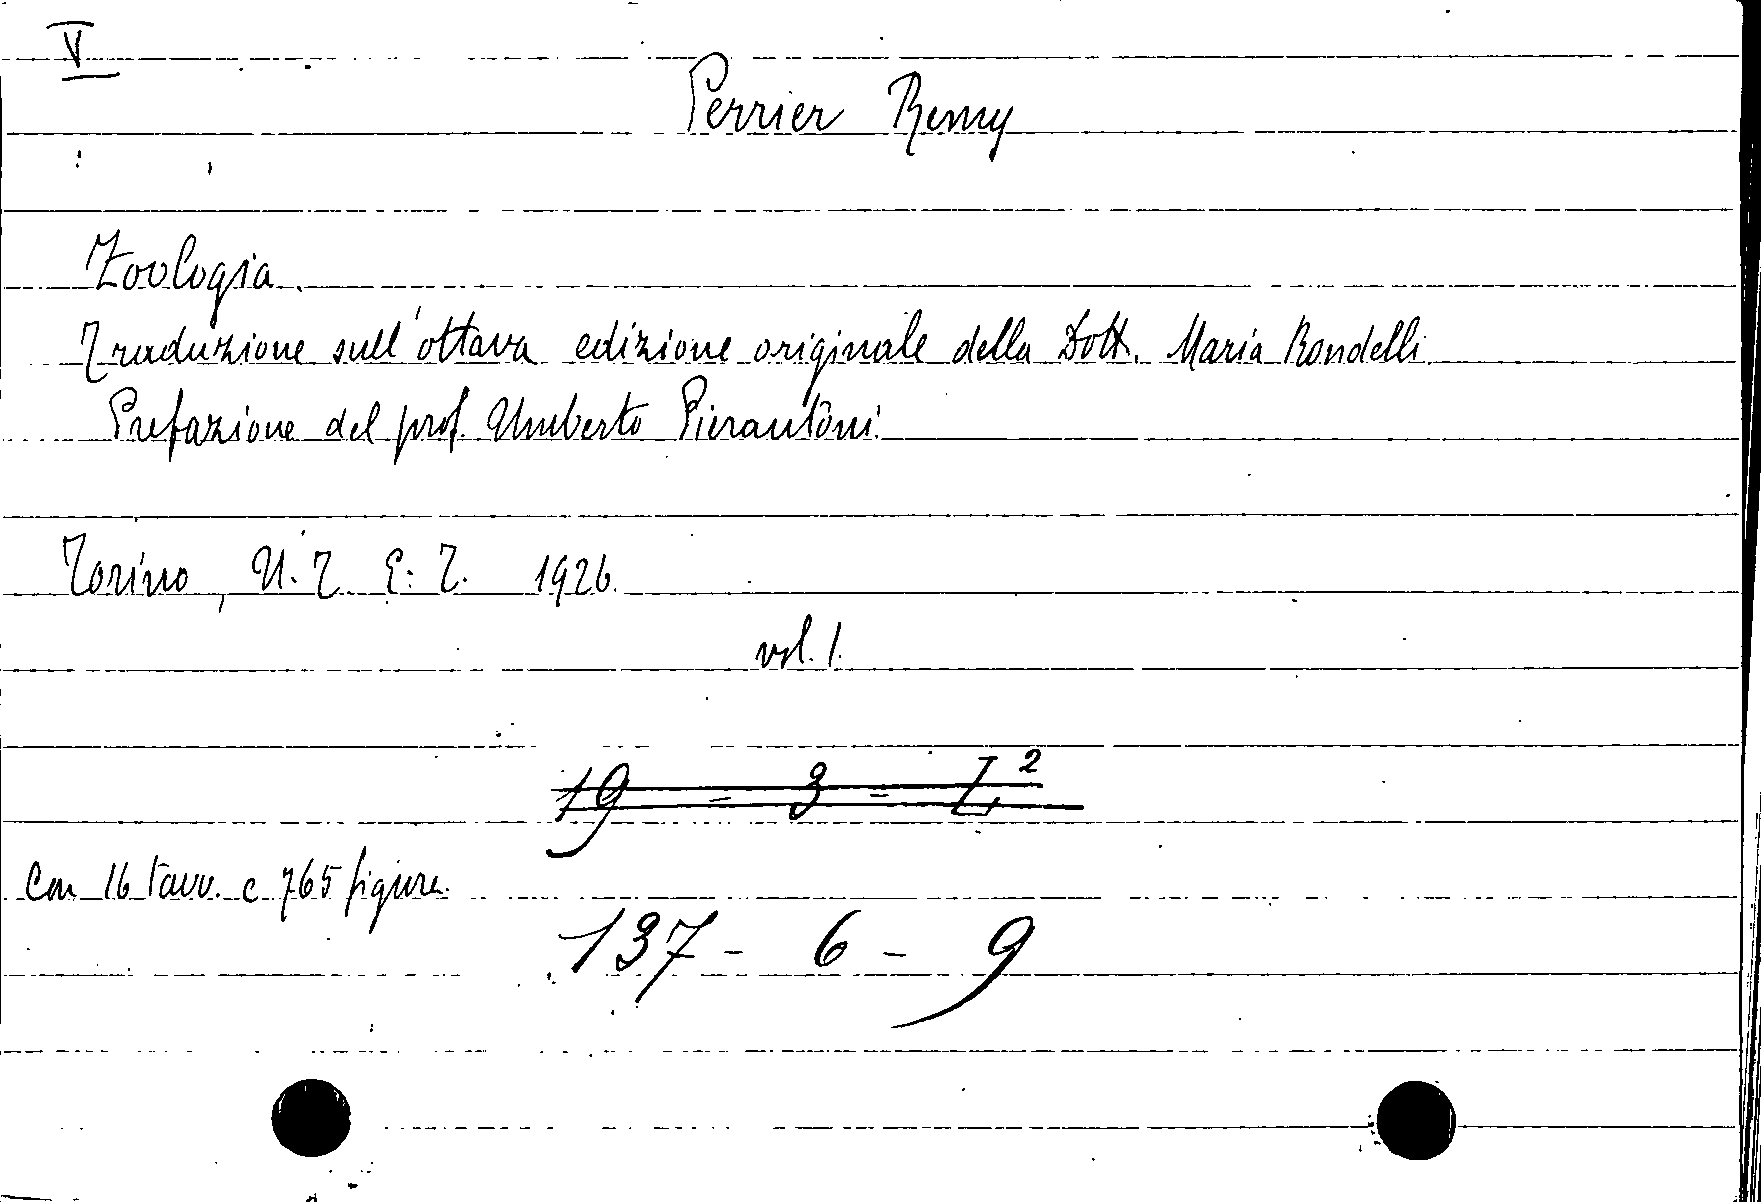 V
Perrier Remy
Zoologia.
Traduzione sull'ottava edizione originale della Dott. Maria Rondelli
Prefazione del prof. Umberto Pierantoni.
Torino, U. T. E. T. 1926.
vol. 1.
19 - 3 - Z²
Con 16 tavv. e 765 figure.
137 - 6 - 9